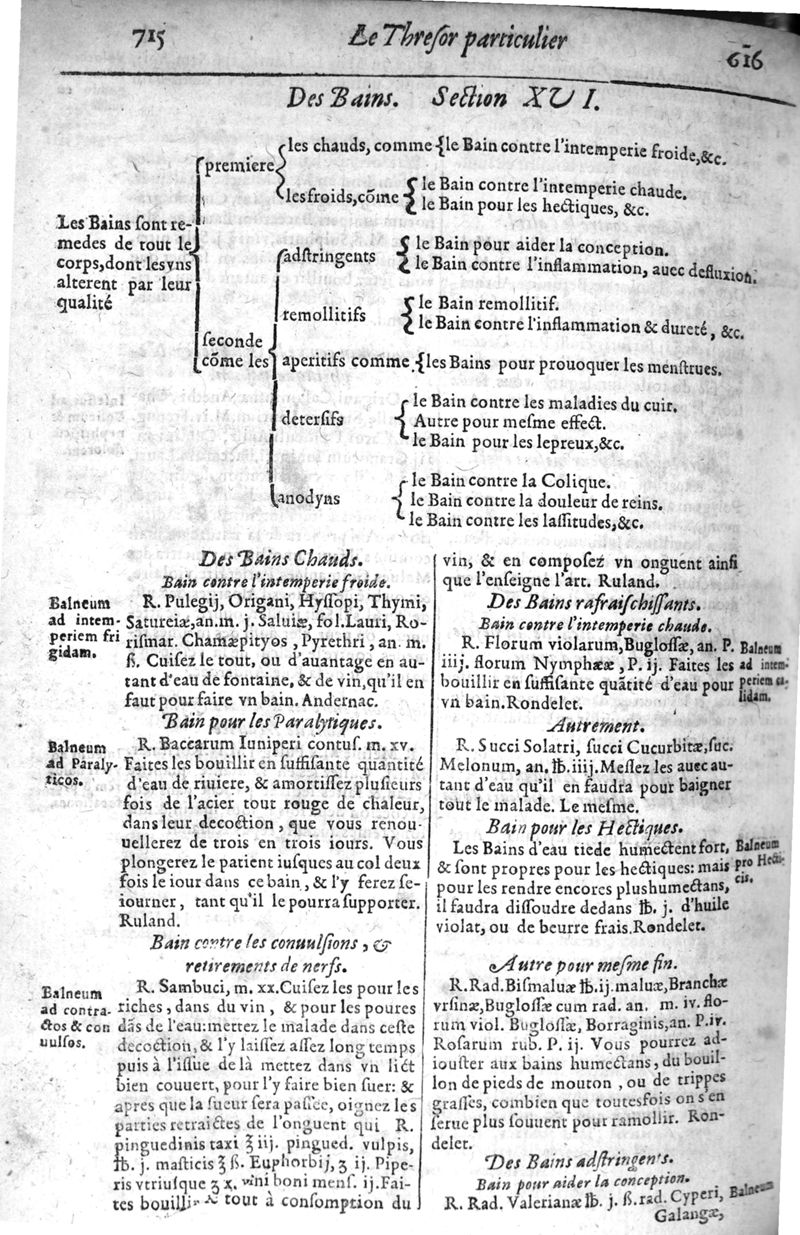 715 Le Thresor particulier 616
Des Bains. Section XVI.
Les Bains sont re-
medes de tout le
corps, dont les vns
alterent par leur
qualité
premiere
les chauds, comme {le Bain contre l'intemperie froide, &c.
les froids, cōme
le Bain contre l'intemperie chaude.
le Bain pour les hectiques, &c.
seconde
cōme les
adstringents
le Bain pour aider la conception.
le Bain contre l'inflammation, auec defluxion.
remollitifs
le Bain remollitif.
le Bain contre l'inflammation & dureté, &c.
aperitifs comme {les Bains pour prouoquer les menstrues.
detersifs
le Bain contre les maladies du cuir.
Autre pour mesme effect.
le Bain pour les lepreux, &c.
anodyns
le Bain contre la Colique.
le Bain contre la douleur de reins.
le Bain contre les lassitudes, &c.
Des Bains Chauds.
Bain contre l'intemperie froide.
Balneum
ad intem-
periem fri
gidam.
R. Pulegij, Origani, Hyssopi, Thymi,
Satureiæ, an. m. j. Saluiæ, fol. Lauri, Ro-
rismar. Chamæpityos, Pyrethri, an. m.
ß. Cuisez le tout, ou d'auantage en au-
tant d'eau de fontaine, & de vin, qu'il en
faut pour faire vn bain. Andernac.
Bain pour les Paralytiques.
Balneum
ad Paraly-
ticos.
R. Baccarum Iuniperi contus. m. xv.
Faites les bouillir en suffisante quantité
d'eau de riuiere, & amortissez plusieurs
fois de l'acier tout rouge de chaleur,
dans leur decoction, que vous renou-
uellerez de trois en trois iours. Vous
plongerez le patient iusques au col deux
fois le iour dans ce bain, & l'y ferez se-
iourner, tant qu'il le pourra supporter.
Ruland.
Bain contre les conuulsions, &
retirements de nerfs.
Balneum
ad contra-
ctos & con
uulsos.
R. Sambuci, m. xx. Cuisez les pour les
riches, dans du vin, & pour les poures
dās de l'eau: mettez le malade dans ceste
decoction, & l'y laissez assez long temps
puis à l'issue de là mettez dans vn lict
bien couuert, pour l'y faire bien suer: &
apres que la sueur sera passée, oignez les
parties retraictes de l'onguent qui R.
pinguedinis taxi ℥ iij. pingued. vulpis,
℔. j. masticis ℥ ß. Euphorbij, ʒ ij. Pipe-
ris vtriusque ʒ x. vini boni mens. ij. Fai-
tes bouillir tout à consomption du
vin, & en composez vn onguent ainsi
que l'enseigne l'art. Ruland.
Des Bains rafraischissants.
Bain contre l'intemperie chaude.
R. Florum violarum, Buglossæ, an. P.
iiij. florum Nymphææ, P. ij. Faites les
bouillir en suffisante quātité d'eau pour
vn bain. Rondelet.
Balneum
ad intem-
periem ca-
lidam.
Autrement.
R. Succi Solatri, succi Cucurbitæ, suc.
Melonum, an. ℔. iiij. Meslez les auec au-
tant d'eau qu'il en faudra pour baigner
tout le malade. Le mesme.
Bain pour les Hectiques.
Les Bains d'eau tiede humectent fort,
& sont propres pour les hectiques: mais
pour les rendre encores plus humectans,
il faudra dissoudre dedans ℔. j. d'huile
violat, ou de beurre frais. Rondelet.
Balneum
pro Hecti-
cis.
Autre pour mesme fin.
R. Rad. Bismaluæ ℔. ij. maluæ, Branchæ
vrsinæ, Buglossæ cum rad. an. m. iv. flo-
rum viol. Buglossæ, Borraginis, an. P. iv.
Rosarum rub. P. ij. Vous pourrez ad-
iouster aux bains humectans, du bouil-
lon de pieds de mouton, ou de trippes
grasses, combien que toutesfois on s'en
serue plus souuent pour ramollir. Ron-
delet.
Des Bains adstringents.
Bain pour aider la conception.
R. Rad. Valerianæ ℔. j. ß. rad. Cyperi,
Balneum
Galangæ,